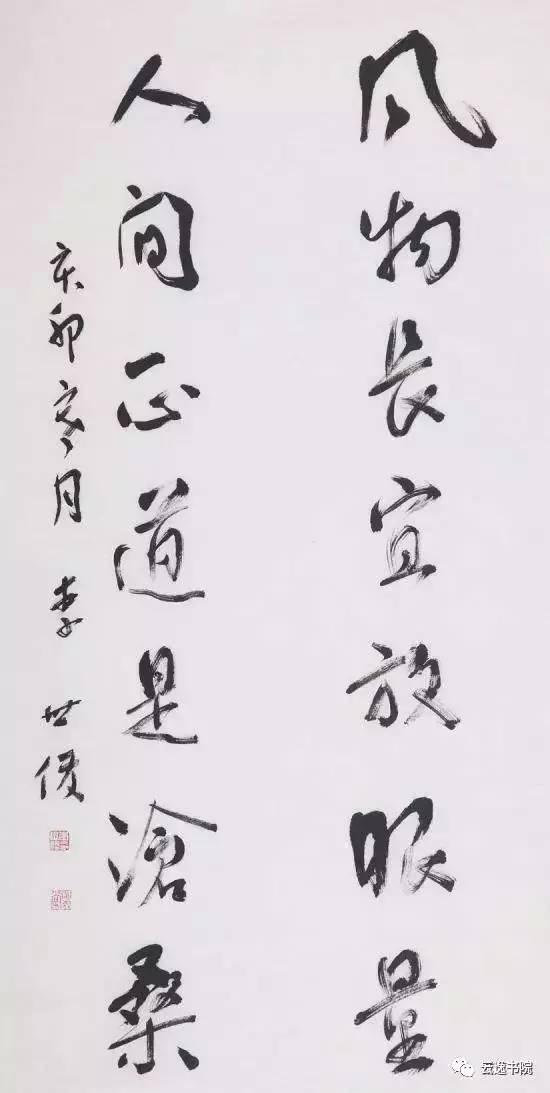 风物長宜放眼量
人间正道是滄桑
辛卯亥月 李世俊
云逸书院